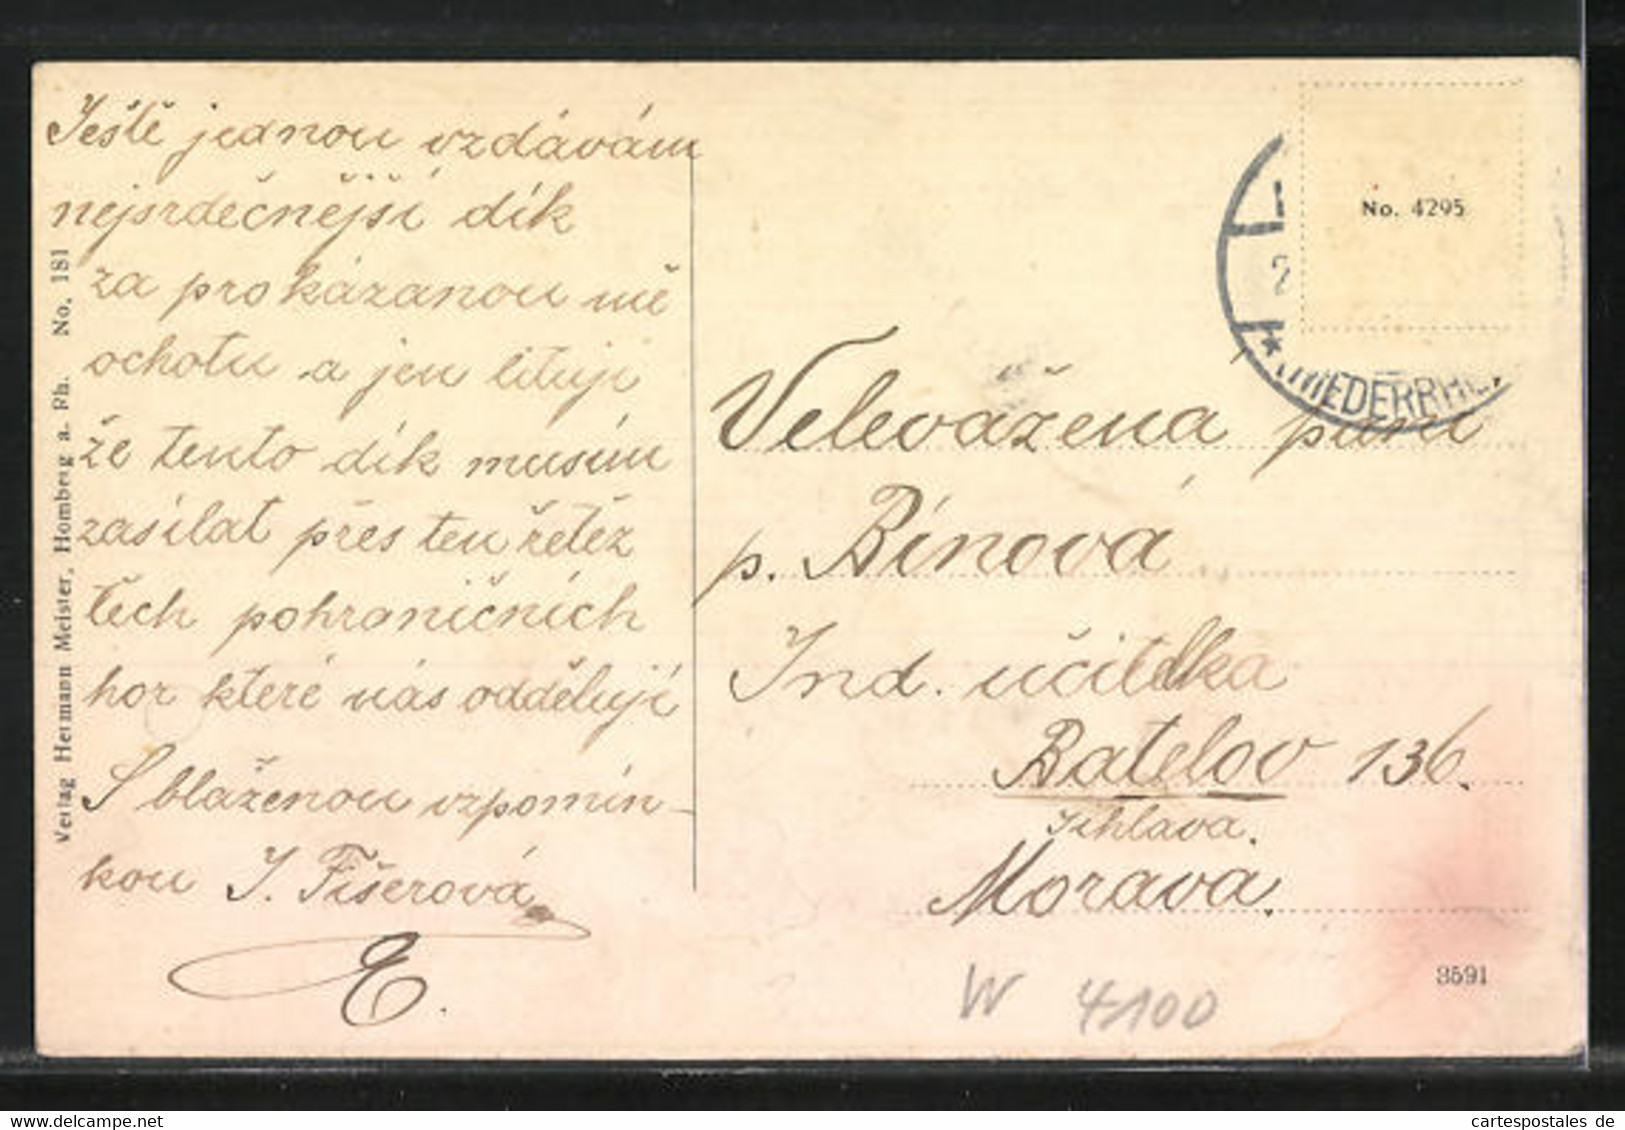 Ještě jednou vzdávám
nejsrdečnější dík
za prokázanou mě
ochotu a jen lituji
že tento dík musím
zasílat přes ten řetěz
těch pohraničních
hor které nás oddělují
S blaženou vzpomín-
kou J. Fišerová
E.
Verlag Hermann Meister, Homberg a. Rh. No. 181
No. 4295
Velevážená paní
p. Bínová
Ind. učitelka
Batelov 136.
Jihlava.
Morava.
3591
W 4/100
www.cartespostales.de